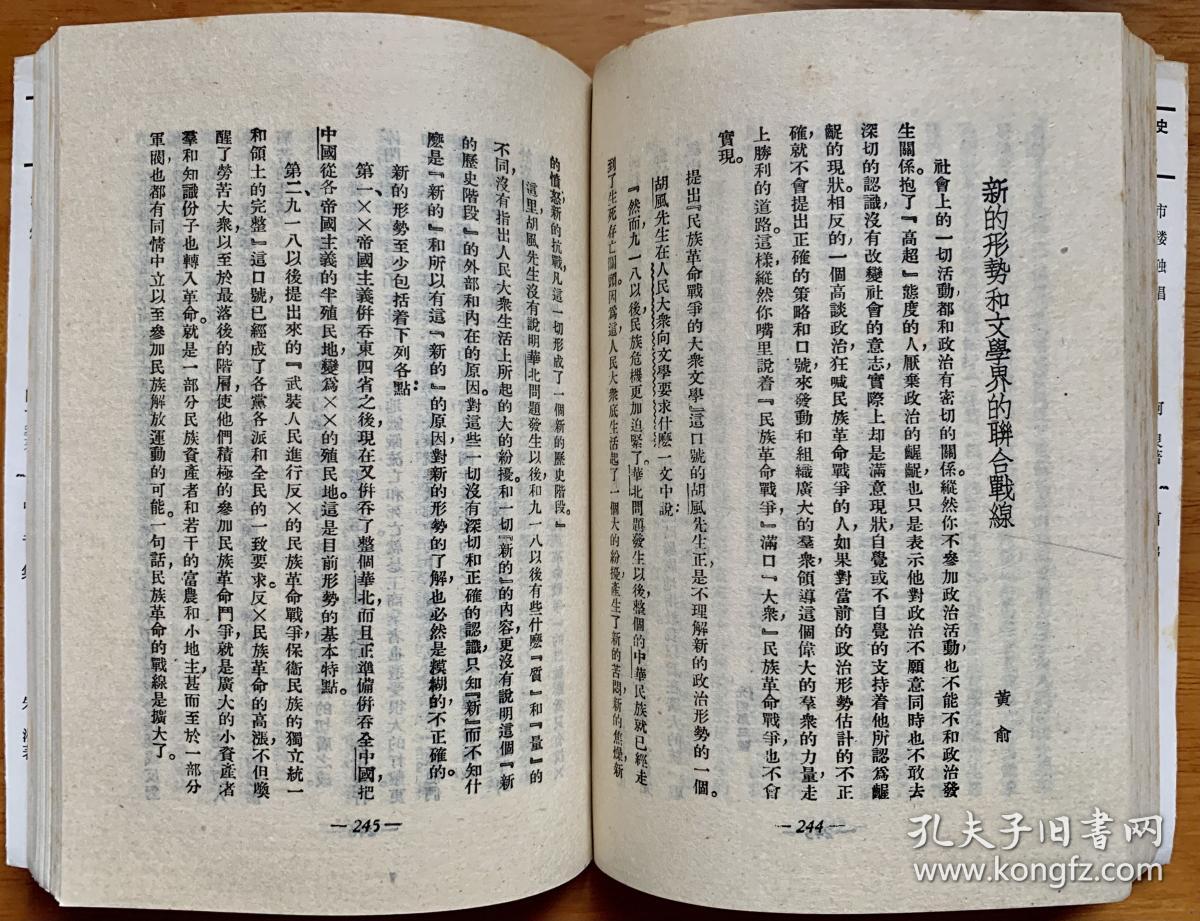 新的形勢和文學界的聯合戰線
黃俞
社會上的一切活動都和政治有密切的關係。縱然你不參加政治活動也不能不和政治發
生關係。抱了『高超』態度的人,厭棄政治的齷齪,也只是表示他對政治不願意同時也不敢去
深切的認識,沒有改變社會的意志,實際上却是滿意現狀,自覺或不自覺的支持着他所認爲齷
齪的現狀。相反的,一個高談政治,狂喊民族革命戰爭的人,如果對當前的政治形勢估計的不正
確,就不會提出正確的策略和口號來發動和組織廣大的羣衆,領導這個偉大的羣衆的力量走
上勝利的道路。這樣,縱然你嘴里說着『民族革命戰爭』滿口『大衆』,民族革命戰爭也不會
實現。
提出『民族革命戰爭的大衆文學』這口號的胡風先生,正是不理解新的政治形勢的一個。
胡風先生在人民大衆向文學要求什麽一文中說:
『然而九一八以後民族危機更加迫緊了,華北問題發生以後,整個的中華民族就已經走
到了生死存亡關頭。因爲這,人民大衆底生活起了一個大的紛擾,產生了新的苦悶,新的焦燥,新
—244—
的憤怒,新的抗戰,凡這一切形成了一個新的歷史階段。』
這里胡風先生沒有說明華北問題發生以後,和九一八以後有些什麽『質』和『量』的
不同,沒有指出人民大衆生活上所起的大的紛擾和一切『新的』的內容,更沒有說明這個『新
的歷史階段』的外部和內在的原因。對這些一切沒有深切和正確的認識,只知『新』而不知什
麽是『新的』和所以有這『新的』的原因,對新的形勢的了解也必然是模糊的不正確的。
新的形勢至少包括着下列各點:
第一、××帝國主義併吞東四省之後,現在又併吞了整個華北,而且正準備併吞全中國,把
中國從各帝國主義的半殖民地,變爲××的殖民地。這是目前形勢的基本特點。
第二、九一八以後提出來的『武裝人民進行反×的民族革命戰爭,保衞民族的獨立統一
和領土的完整』這口號,已經成了各黨各派和全民的一致要求。反×民族革命的高漲,不但喚
醒了勞苦大衆,以至於最落後的階層,使他們積極的參加民族革命鬥爭,就是廣大的小資產者
羣和知識份子也轉入革命。就是一部分民族資產者和若干的富農和小地主,甚而至於一部分
軍閥,也都有同情中立以至參加民族解放運動的可能。一句話,民族革命的戰線是擴大了。
—245—
孔夫子旧书网
www.kongfz.com